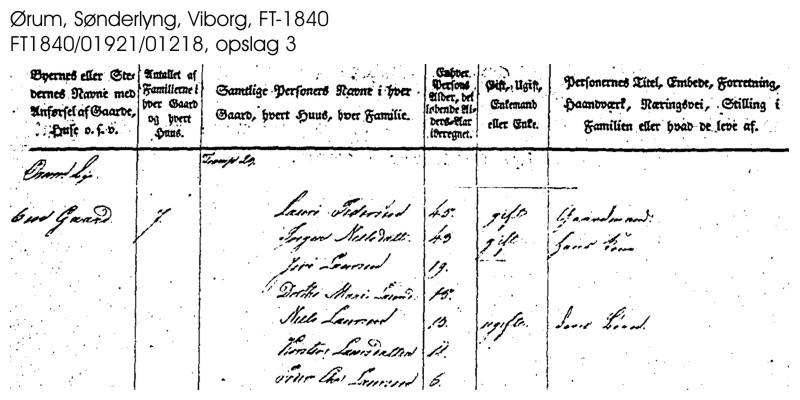 Ørum, Sønderlyng, Viborg, FT-1840
FT1840/01921/01218, opslag 3
Byernes eller Ste-
dernes Navne med
Anførsel af Gaarde,
Huse o. s. v.
Antallet af
Familierne i
hver Gaard
og hvert
Huus.
Samtlige Personers Navne i hver
Gaard, hvert Huus, hver Familie.
Enhver
Persons
Alder, det
løbende Al-
ders-Aar
iberegnet.
Gift, Ugift,
Enkemand
eller Enke.
Personernes Titel, Embede, Forretning,
Haandværk, Næringsvei, Stilling i
Familien eller hvad de leve af.
Gaard 7. Lauri Pedersen 45. gift Gaardmand
Inger Nielsdatt. 43 gift hans Kone
Laursen 19.
Dorthe Marie 15.
Niels Laursen 13. ugifte deres Børn
Laursdatter 11.
Peder Laursen 6.